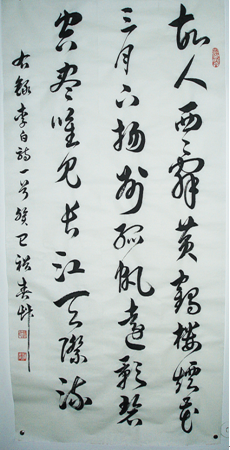 故人西辭黄鶴樓煙花
三月下揚州孤帆遠影碧
空盡唯見長江天際流
右錄李白詩一首癸巳春